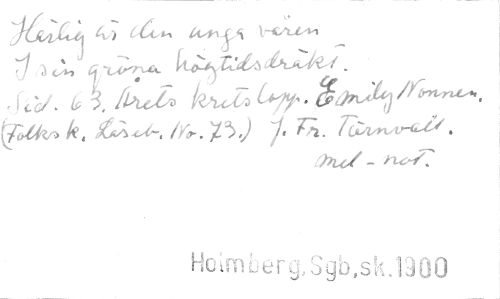 Härlig är den unga våren
I sin gröna högtidsdräkt.
Sid. 63. Årets kretslopp. Emily Nonnen.
(Folksk. Läseb. No. 73.) J. Fr. Törnvall.
mel-not.
Holmberg, Sgb, sk. 1900